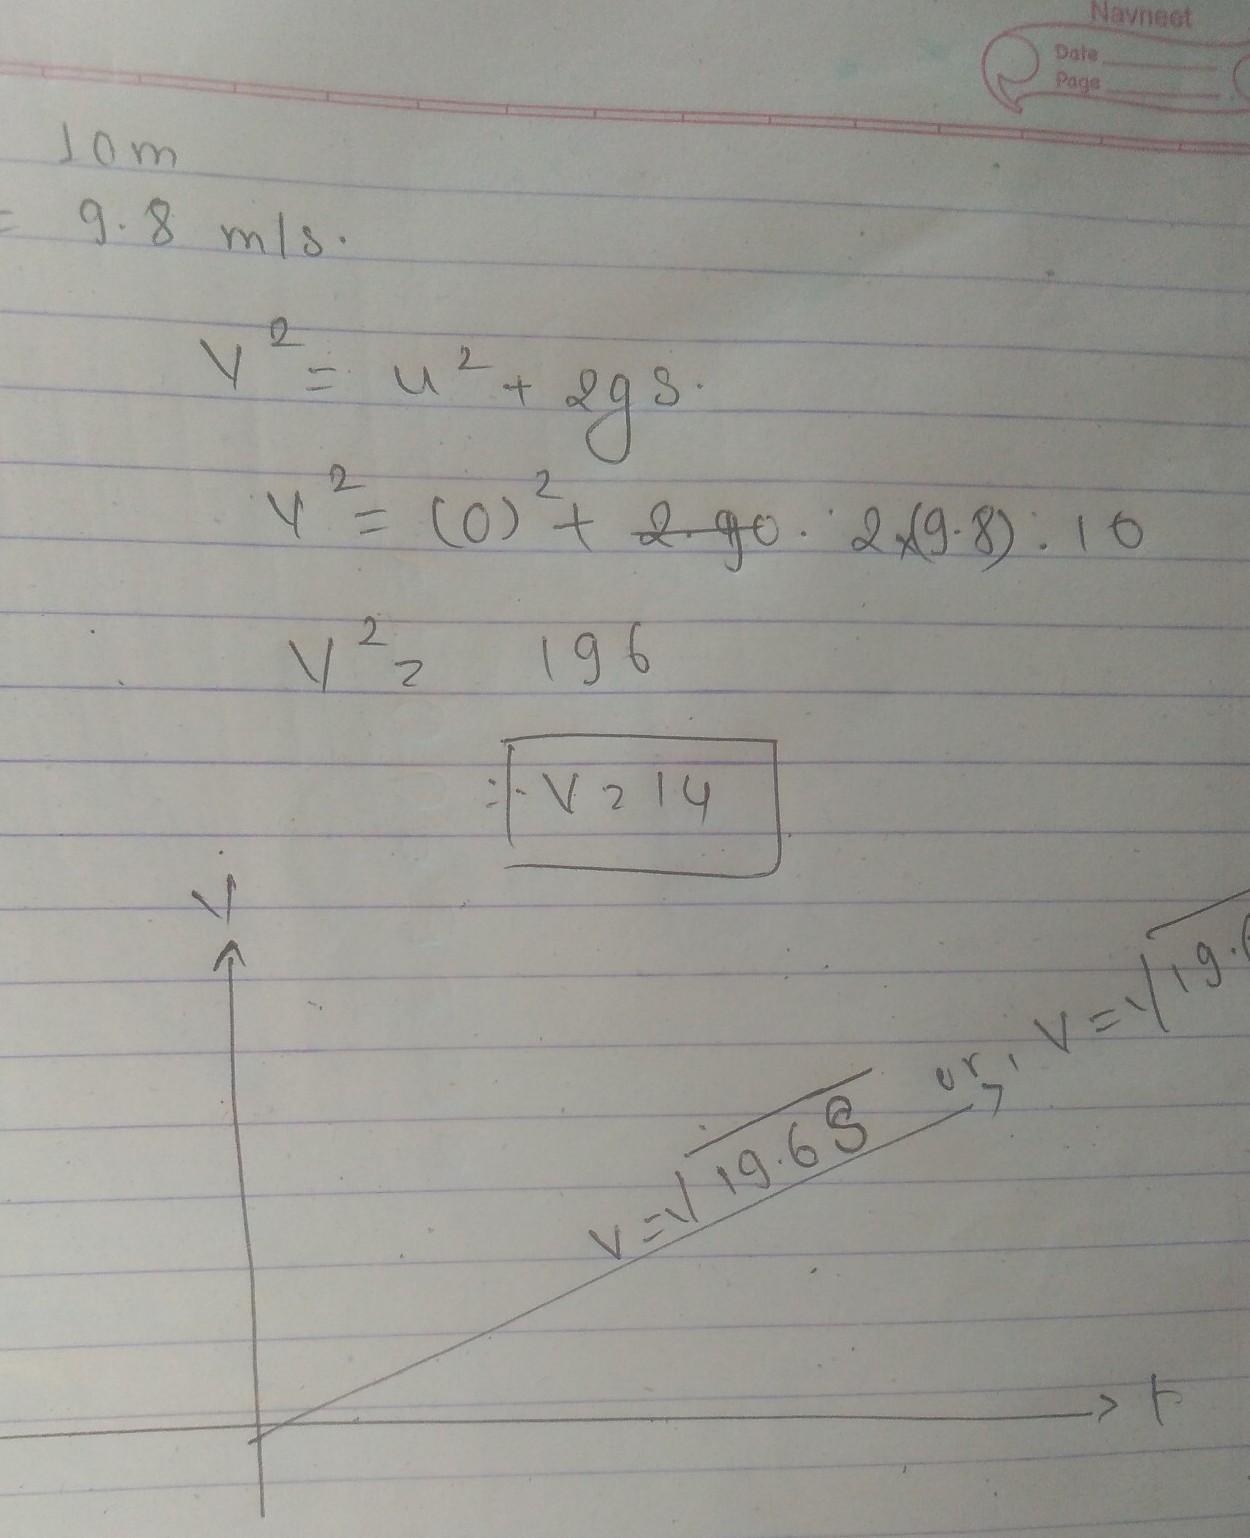 Navneet
Date
Page
10m
= 9.8 m/s.
V² = u² + 2gs.
V² = (0)² + 2×(9.8).10
V² = 196
∴ V = 14
V
V = √19.6S or, V = √19.6
t